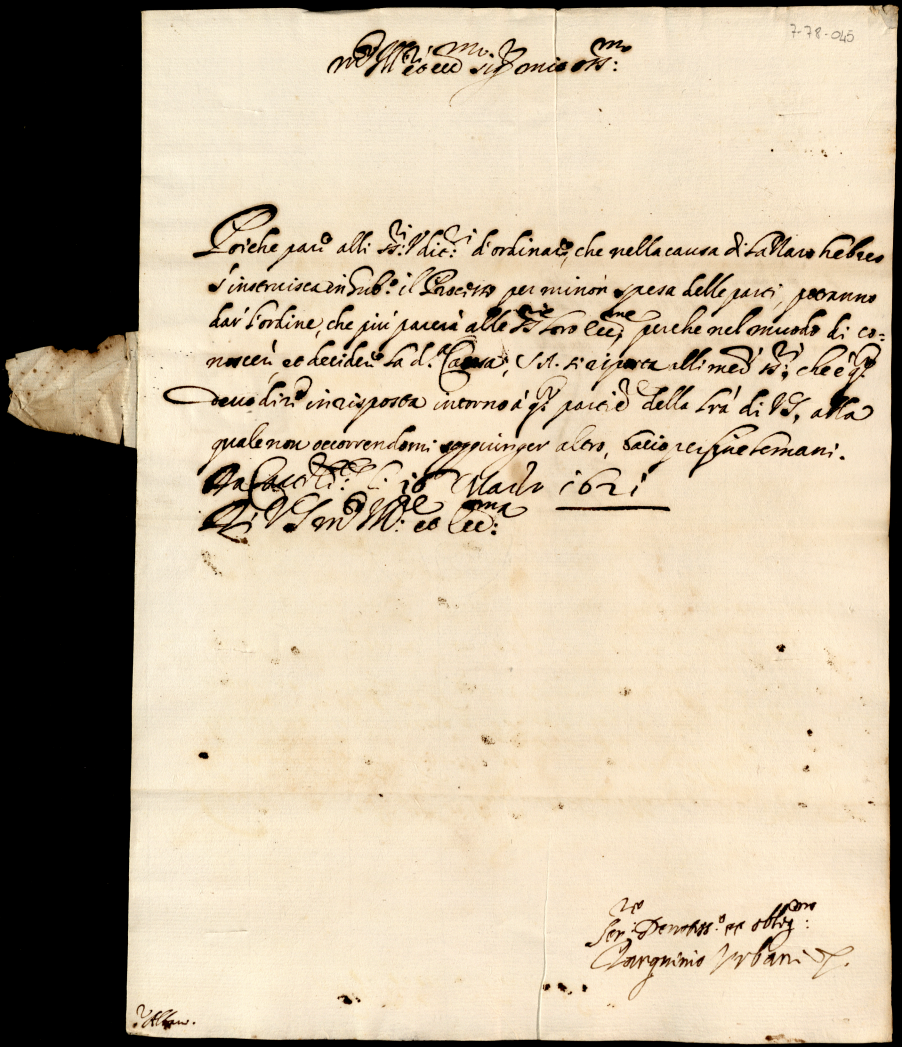 7-78-045
m.to Ill.re et ecc.mo sig.r mio oss.mo:
Poiche pare alli SS.ri Udit.ri d'ordinare, che nella causa di hebreo
s'instruisca in Sub.o il Processo per minor spesa delle parti, potranno
dar l'ordine, che più parerà alle loro Ecc.me, perche nel muodo di co=
noscere et decidere la d.a Causa, S.A. si riporta alli med.i SS.ri, che è q.to
devo dire in risposta intorno à q.to particre della lrã di VS, alla
quale non occorrendomi soggiunger altro, bacio per fine le mani.
li 16 Marzo 1621
Di VS m.to Ill.re et Ecc.ma
Ser.re Devotiss.o et obblig.mo
Tarquinio Urbani